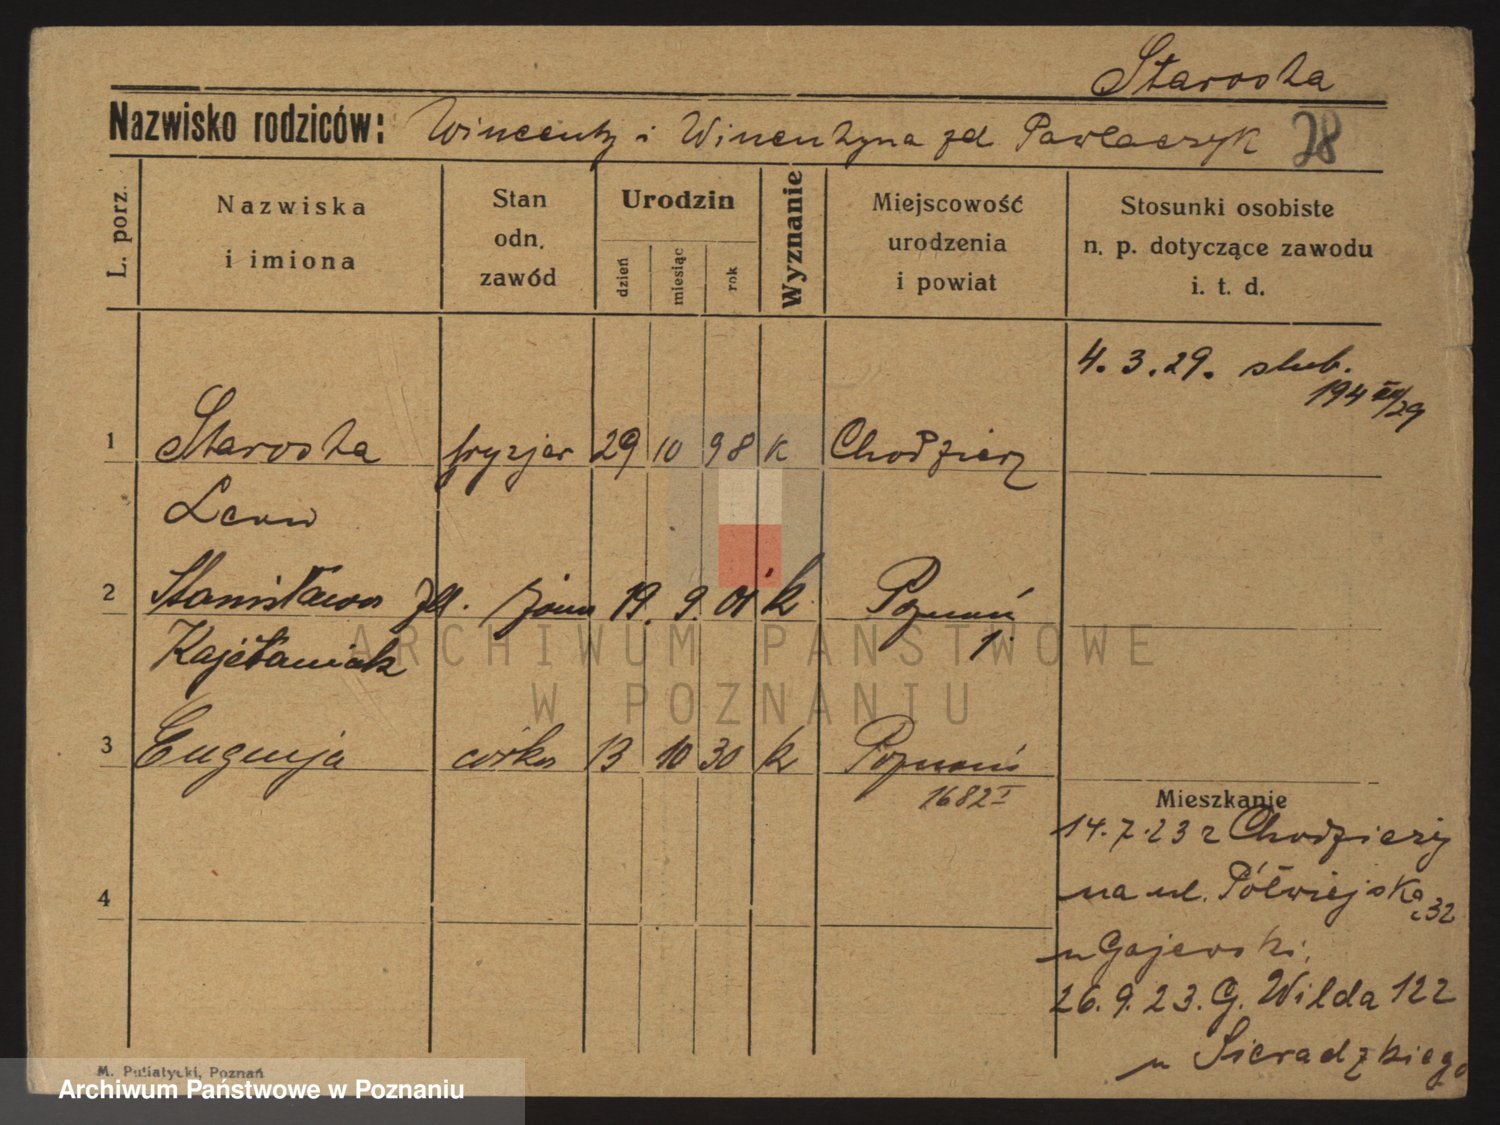 Starosta
Nazwisko rodziców: Wincenty i Wincentyna zd Pawlaczyk 28
L. porz.
Nazwiska
i imiona
Stan
odn.
zawód
Urodzin
dzień
miesiąc
rok
Wyznanie
Miejscowość
urodzenia
i powiat
Stosunki osobiste
n. p. dotyczące zawodu
i. t. d.
4. 3. 29. slub.
194 III/29
1 Starosta fryzjer 29 10 98 k Chodzież
Leon
2 Stanisława zd. żona 19. 9. 01 k Poznań
Kajetaniak 1.
3 Eugenja córka 13 10 30 k Poznań
1682 I
4
Mieszkanie
14. 7. 23 z Chodzieży
na ul. Półwiejska 32
u Gajewski.
26. 9. 23. G. Wilda 122
u Sieradzkiego
M. Putiatycki, Poznań
ARCHIWUM PAŃSTWOWE
W POZNANIU
Archiwum Państwowe w Poznaniu